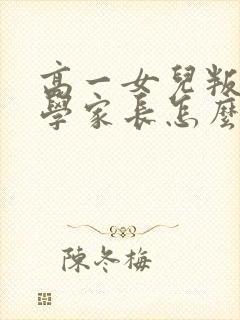 高一女兒叛
學家長怎麼
陳冬梅